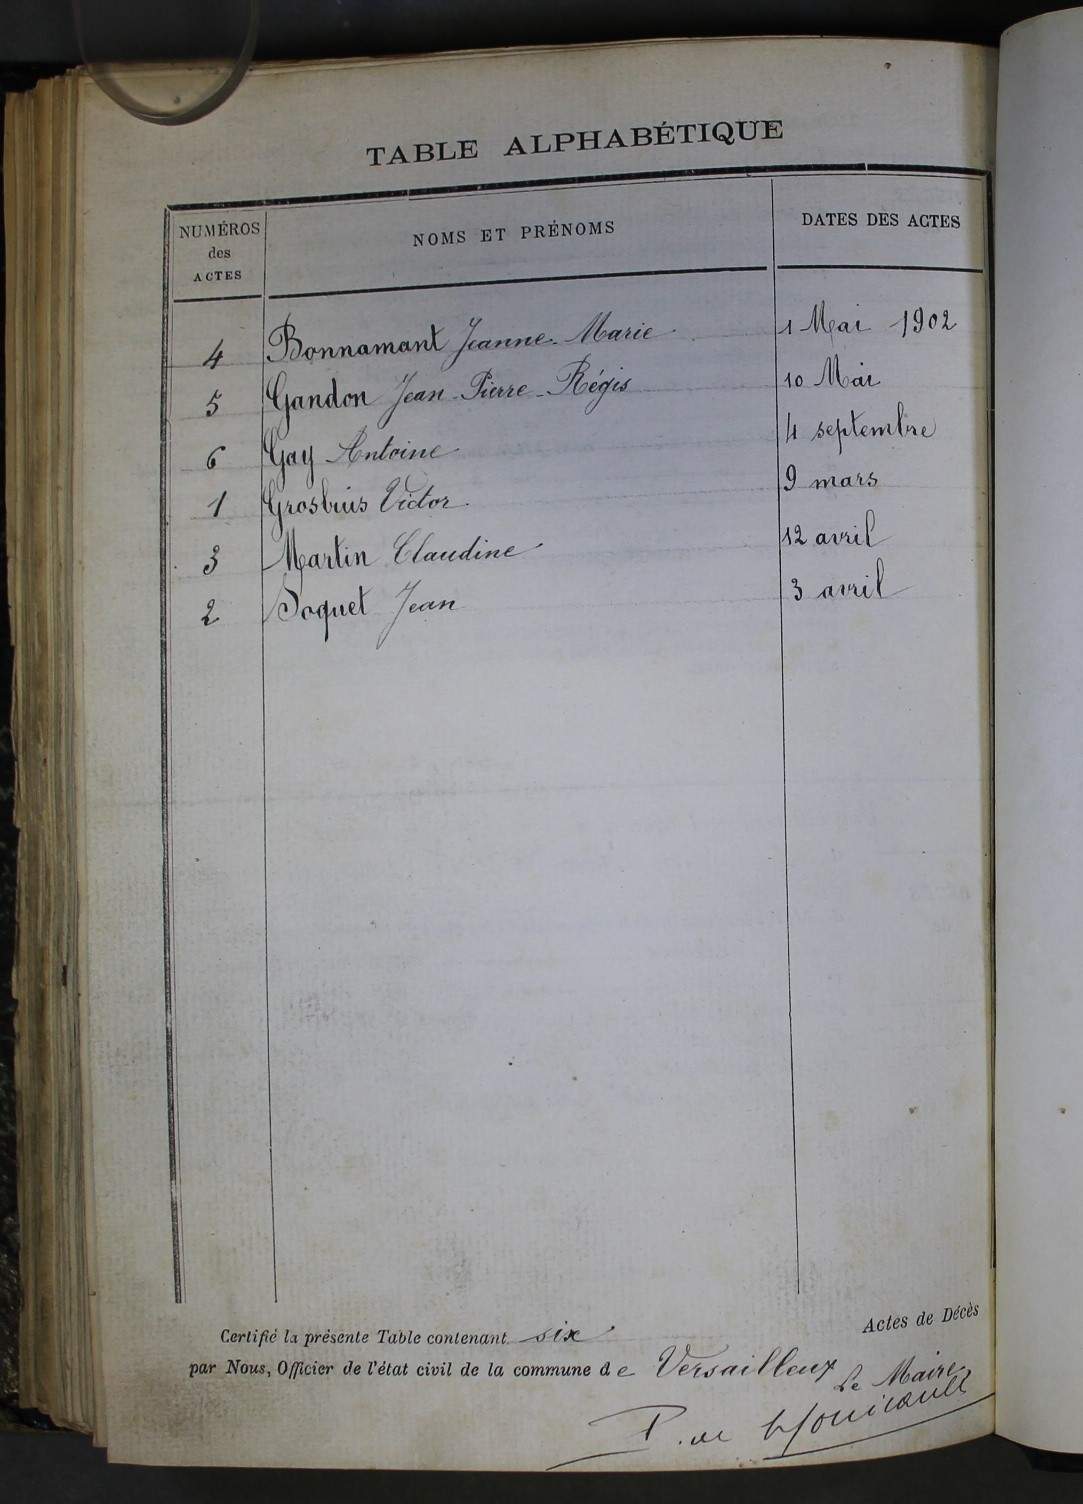 TABLE ALPHABÉTIQUE
NUMÉROS des ACTES NOMS ET PRÉNOMS DATES DES ACTES
4 Bonnamant Jeanne-Marie 1 Mai 1902
5 Gandon Jean-Pierre-Régis 10 Mai
6 Gay Antoine 4 septembre
1 Victor 9 mars
3 Martin Claudine 12 avril
2 Soquet Jean 3 avril
Certifié la présente Table contenant six Actes de Décès
par Nous, Officier de l'état civil de la commune de Versailleux
Le Maire
P. de